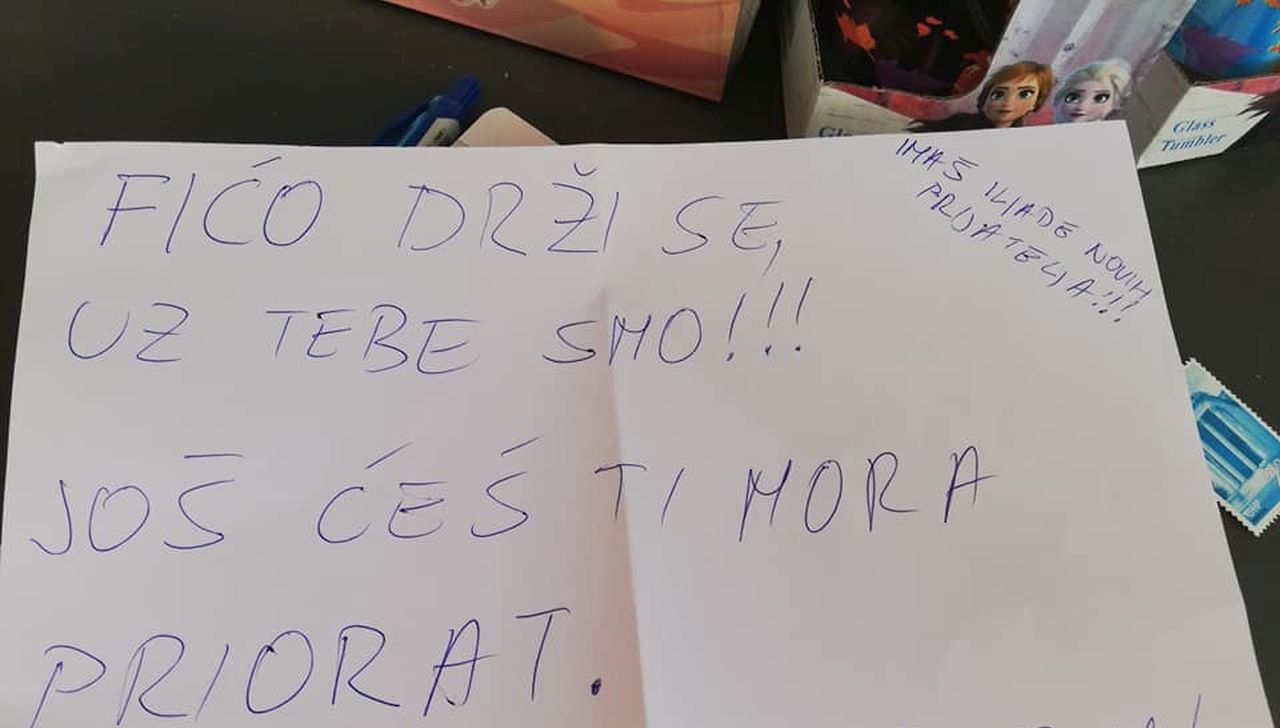 FIĆO DRŽI SE,
UZ TEBE SMO!!!
JOŠ ĆEŚ TI MORA
PRIORAT.
IMAŠ ILJADE NOVIH
PRIJATELJA!!!
Glass
Tumbler